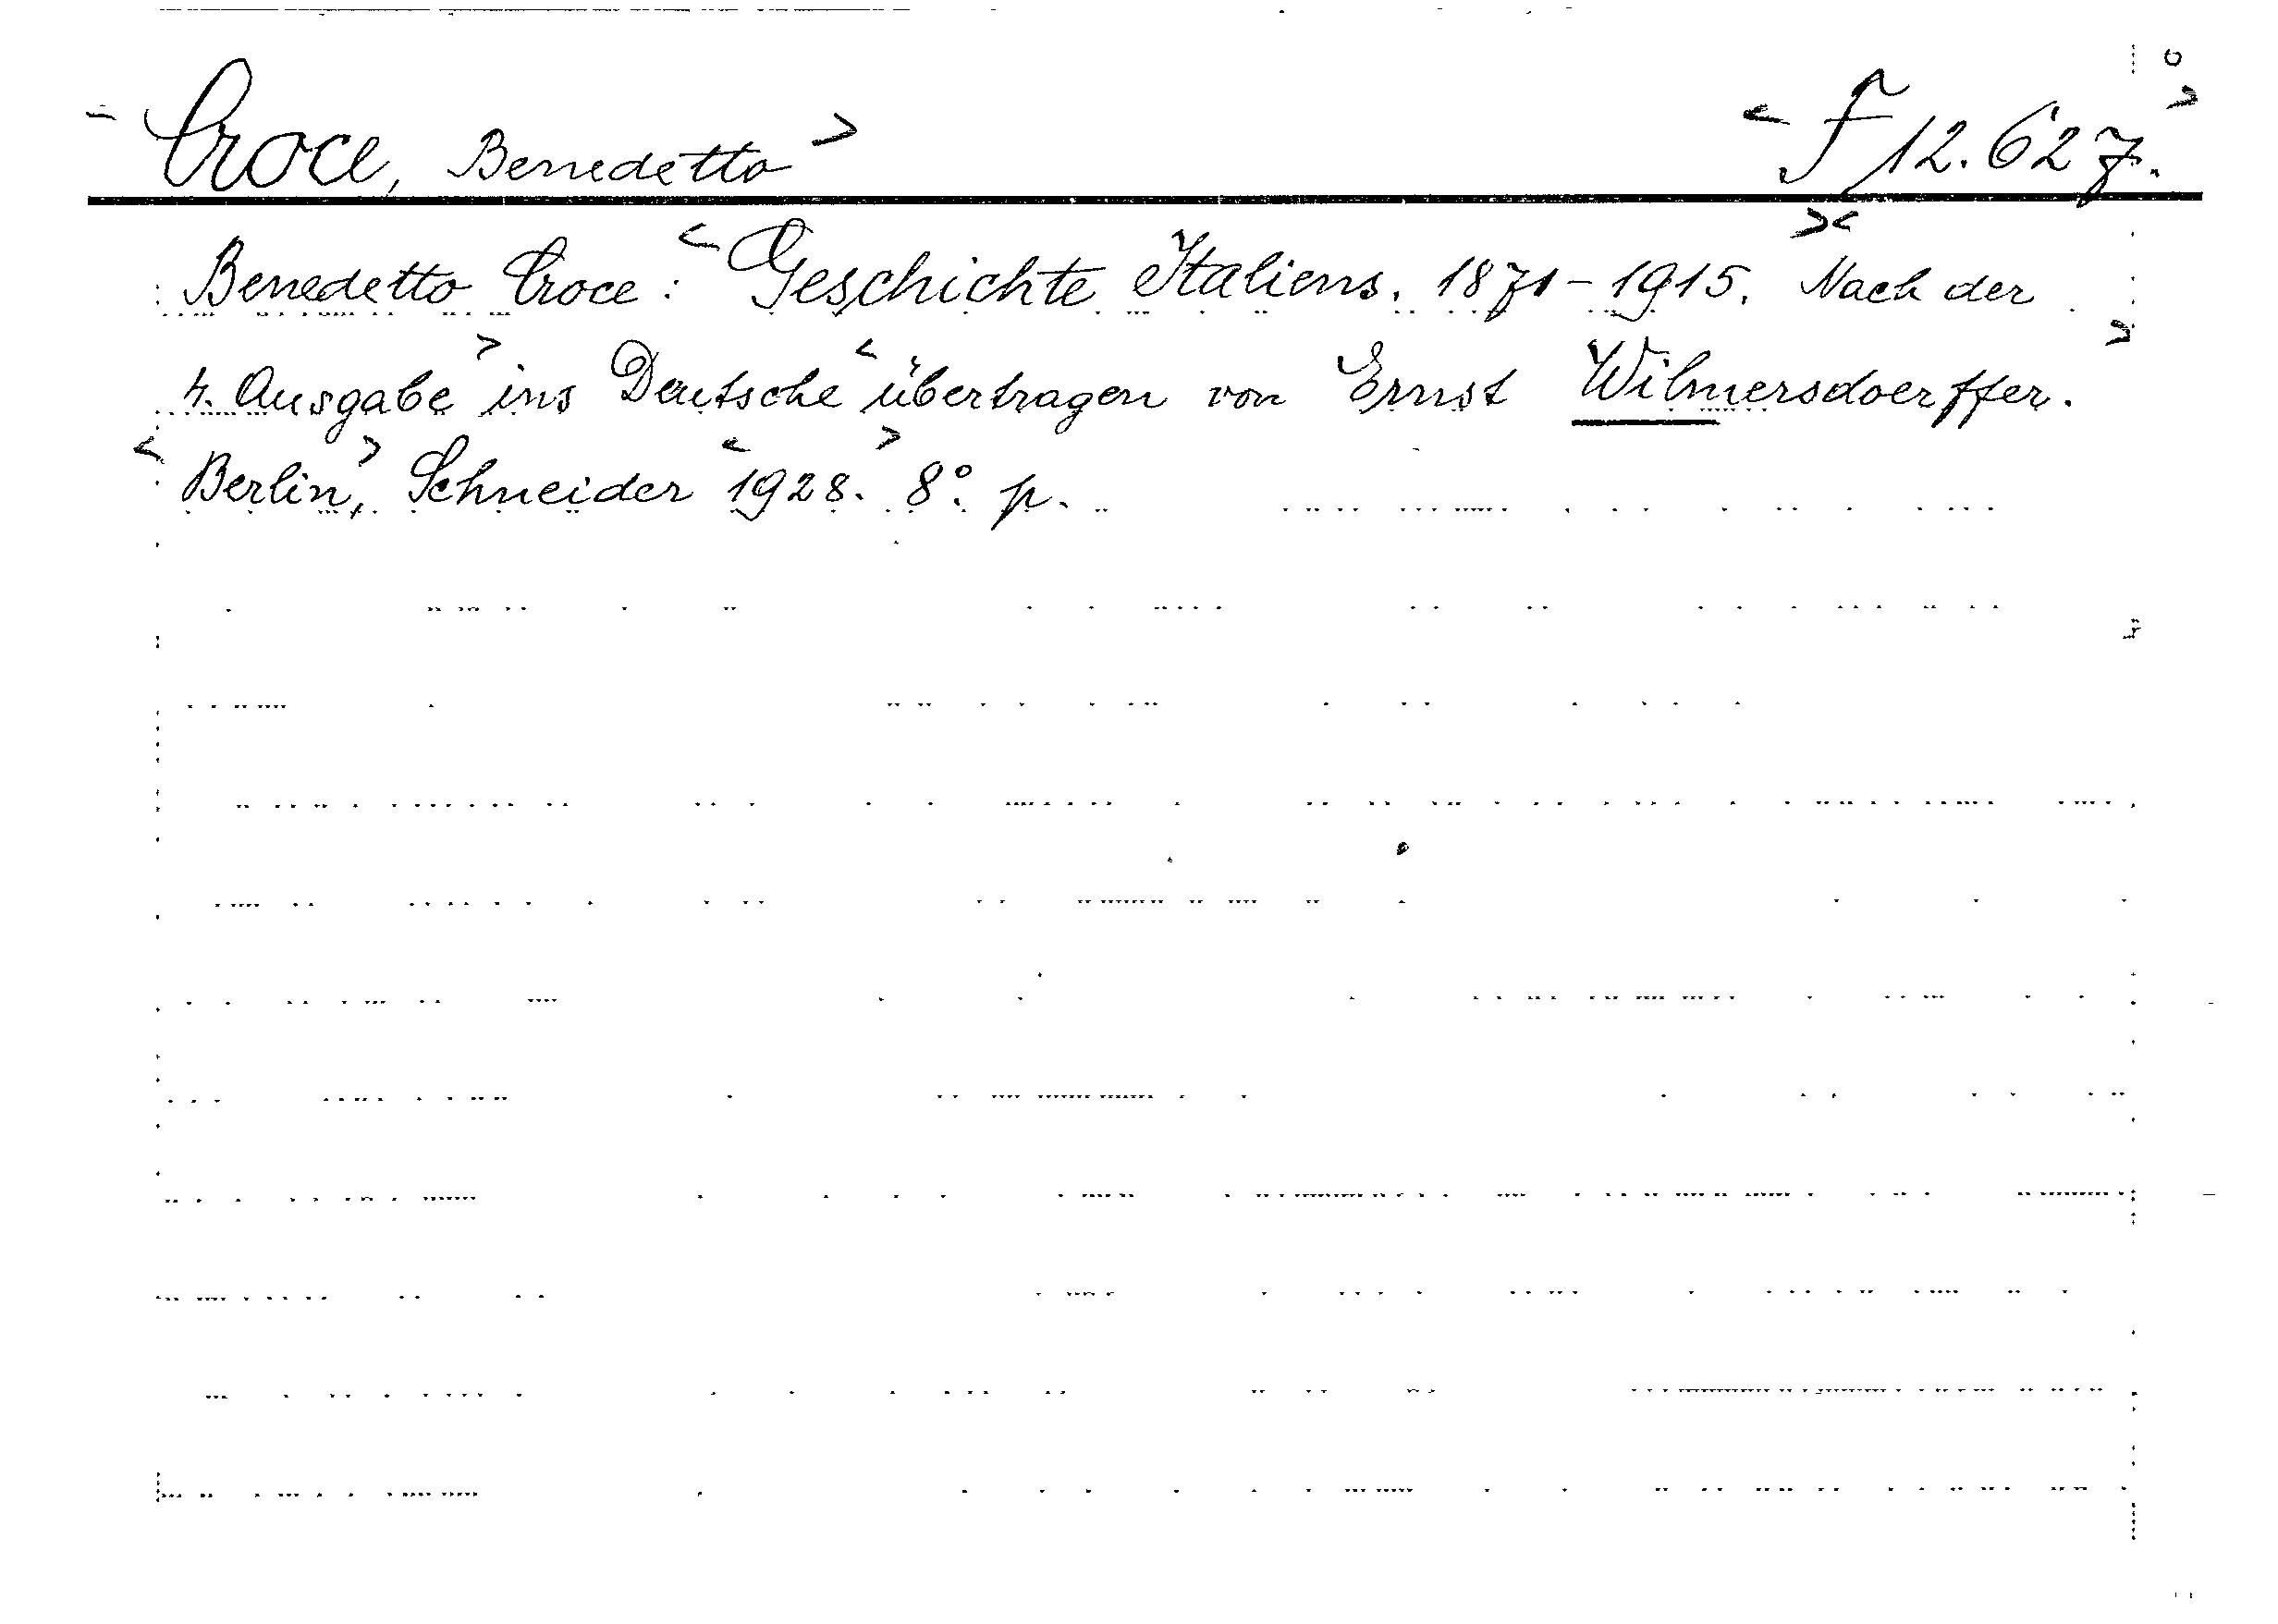 Croce, Benedetto F 12.627.
Benedetto Croce: Geschichte Italiens. 1871-1915. Nach der
4. Ausgabe ins Deutsche übertragen von Ernst Wilmersdoerffer.
Berlin, Schneider 1928. 8°. p.